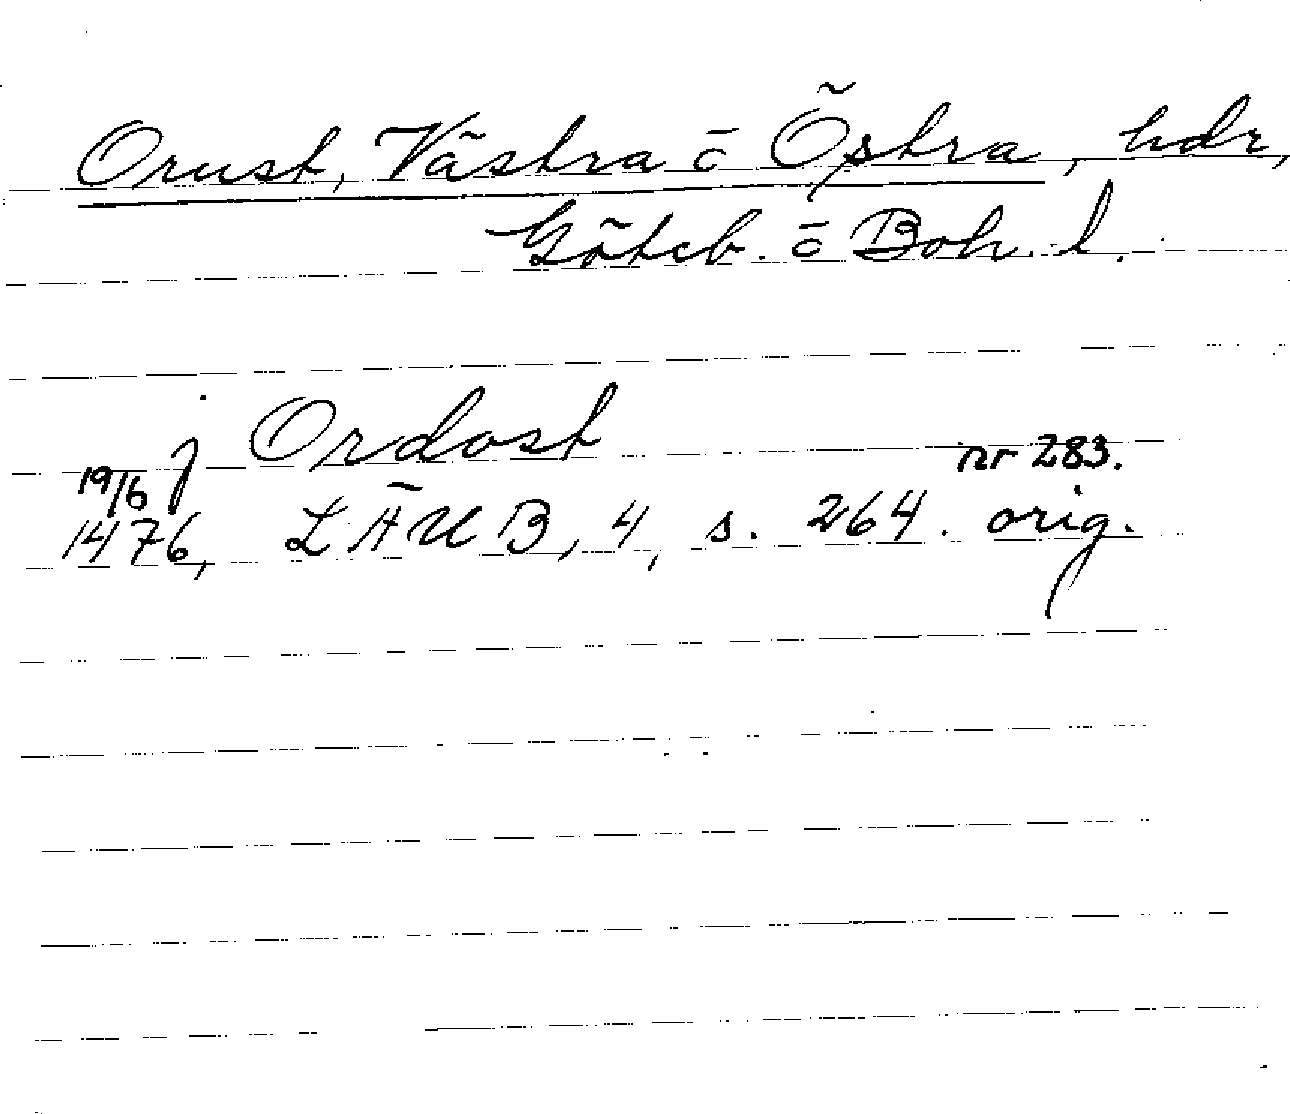 Orust, Västra o Östra, hdr,
Göteb. o Boh. l.
j Ordost
19/6 nr 283.
1476, LÄUB, 4, s. 264. orig.